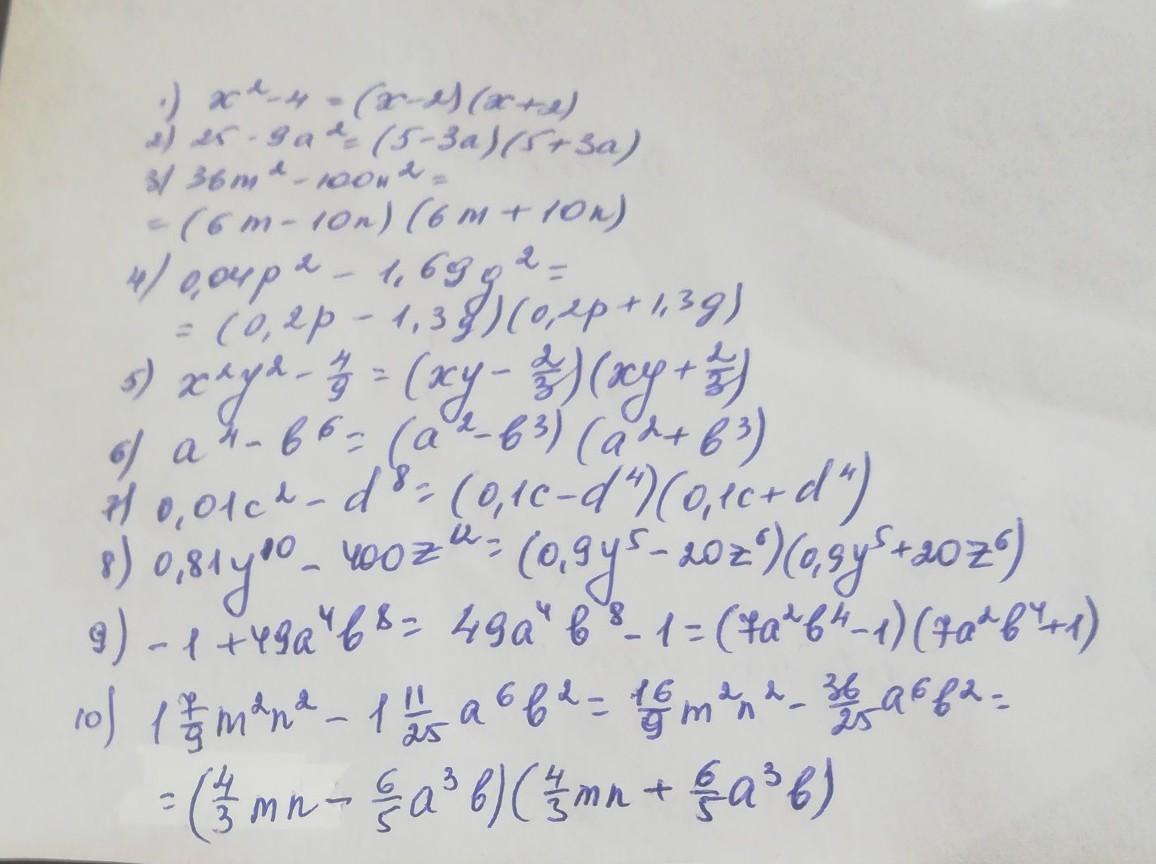 1) x² - 4 = (x-2)(x+2)
2) 25 - 9a² = (5-3a)(5+3a)
3) 36m² - 100n² =
= (6m - 10n)(6m + 10n)
4) 0,04p² - 1,69g² =
= (0,2p - 1,3g)(0,2p + 1,3g)
5) x²y² - 4/9 = (xy - 2/3)(xy + 2/3)
6) a⁴ - b⁶ = (a² - b³)(a² + b³)
7) 0,01c² - d⁸ = (0,1c - d⁴)(0,1c + d⁴)
8) 0,81y¹⁰ - 400z¹² = (0,9y⁵ - 20z⁶)(0,9y⁵ + 20z⁶)
9) -1 + 49a⁴b⁸ = 49a⁴b⁸ - 1 = (7a²b⁴ - 1)(7a²b⁴ + 1)
10) 1 7/9 m²n² - 1 11/25 a⁶b² = 16/9 m²n² - 36/25 a⁶b² =
= (4/3 mn - 6/5 a³b)(4/3 mn + 6/5 a³b)